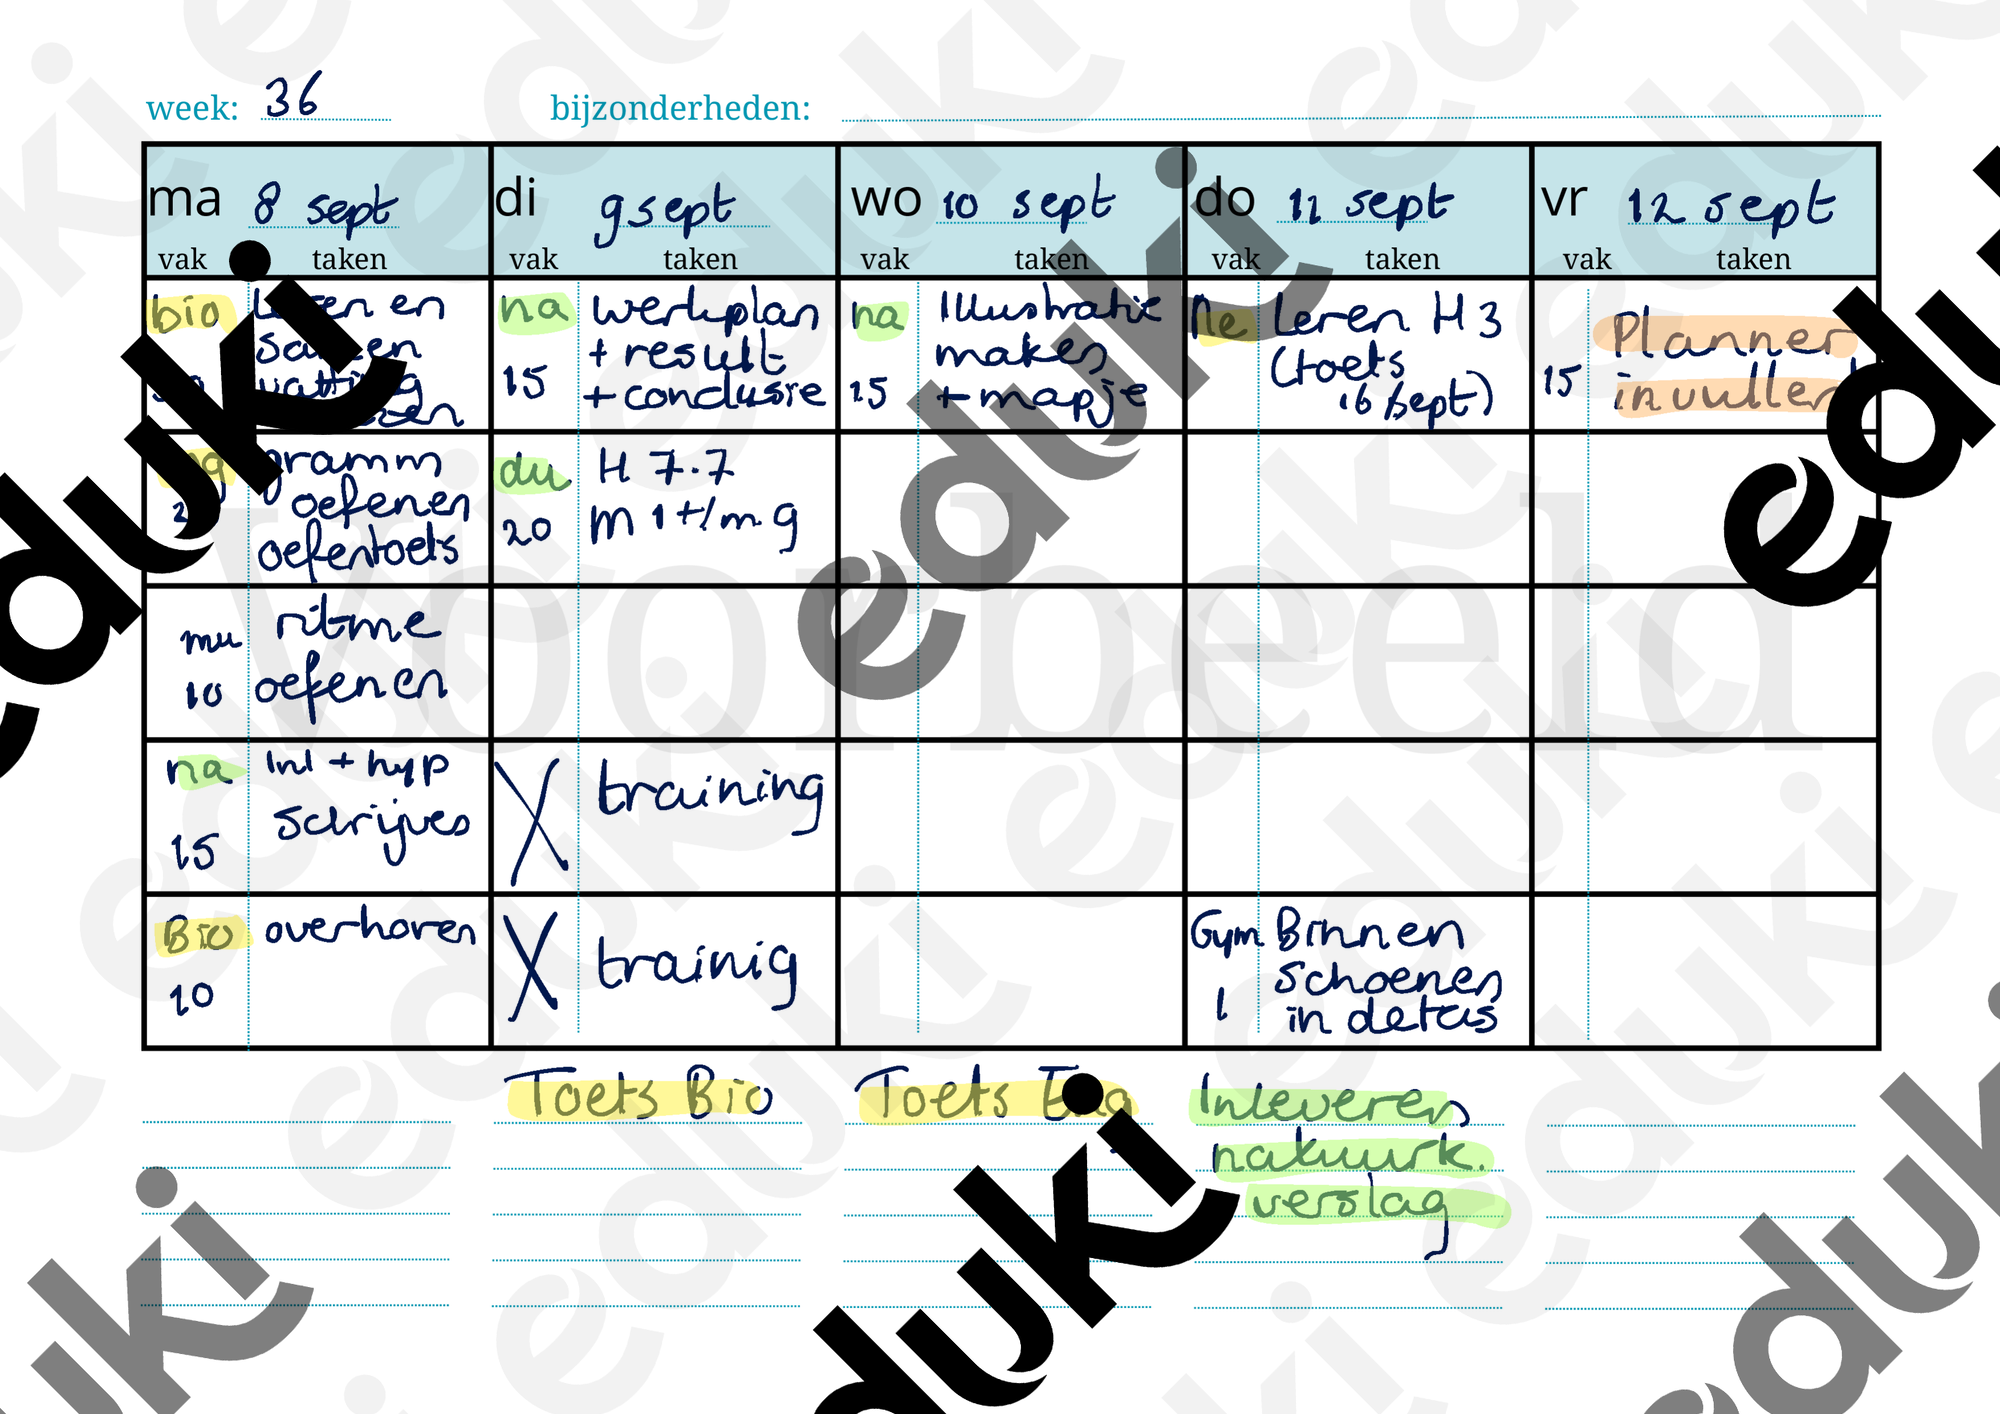 week: 36 bijzonderheden:
ma 8 sept di 9 sept wo 10 sept do 11 sept vr 12 sept
vak taken vak taken vak taken vak taken vak taken
bio Leren en
na werkplan
+ result
15 + conclusie
na Illustratie
maken
15 + mapje
ne Leren H3
(toets
16 sept)
Planner
15 invullen
gramm
oefenen
oefentoets
du H 7.7
20 m 1 t/m 9
mu ritme
10 oefenen
na inl + hyp
schrijven
15
X training
Bio overhoren
10
X trainig
Gym Binnen
schoenen
1 in de tas
Toets Bio
Toets Eng
Inleveren
natuurk.
verslag
Voorbeeld
eduki
eduki
eduki
eduki
eduki
eduki